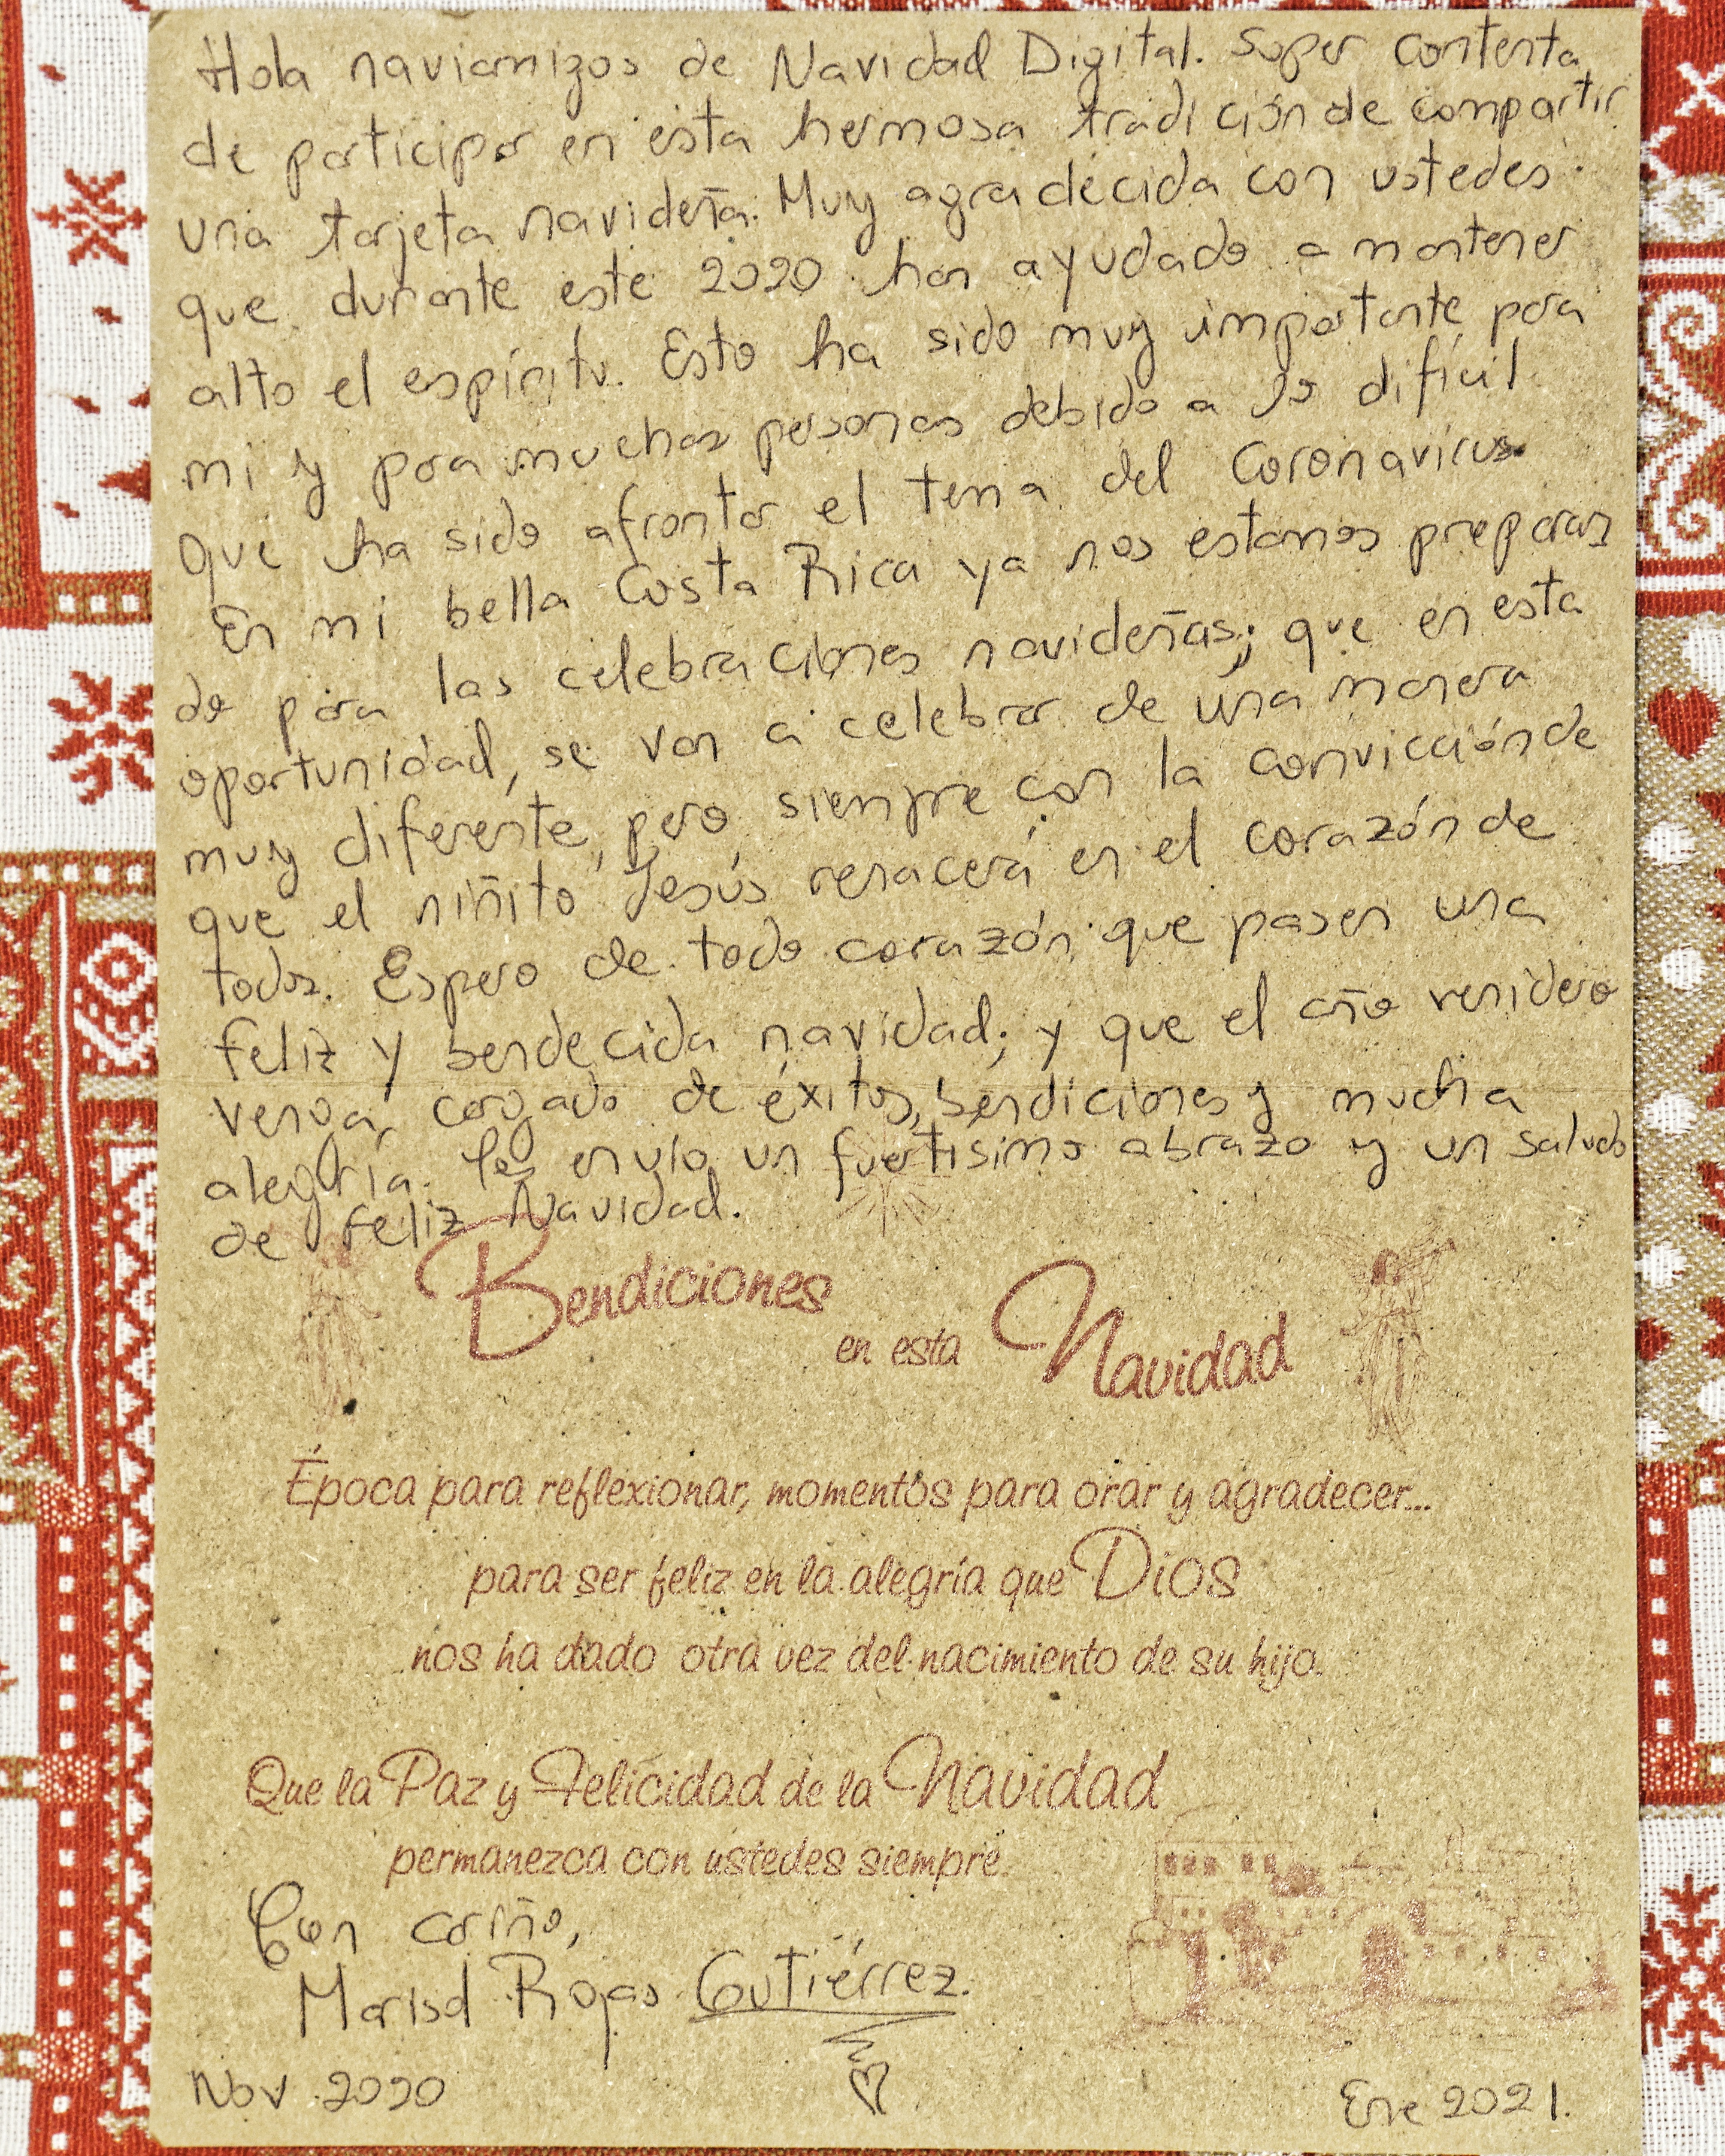 Hola naviamigos de Navidad Digital. Super contenta
de participar en esta hermosa tradición de compartir
una tarjeta navideña. Muy agradecida con ustedes
que durante este 2020 han ayudado a mantener
alto el espíritu. Esto ha sido muy importante para
mi y para muchas personas debido a lo difícil
que ha sido afrontar el tema del Coronavirus.
En mi bella Costa Rica ya nos estamos preparan
do para las celebraciones navideñas; que en esta
oportunidad, se van a celebrar de una manera
muy diferente, pero siempre con la convicción de
que el niñito Jesús renacerá en el corazón de
todos. Espero de todo corazón que pasen una
feliz y bendecida navidad; y que el año venidero
venga cargado de éxitos, bendiciones y mucha
alegría. les envío un fuertísimo abrazo y un saludo
de feliz Navidad.
Bendiciones en esta Navidad
Época para reflexionar, momentos para orar y agradecer...
para ser feliz en la alegría que Dios
nos ha dado otra vez del nacimiento de su hijo.
Que la Paz y Felicidad de la Navidad
permanezca con ustedes siempre.
Con cariño,
Marisol Rojas Gutiérrez.
Nov 2020 Ene 2021.